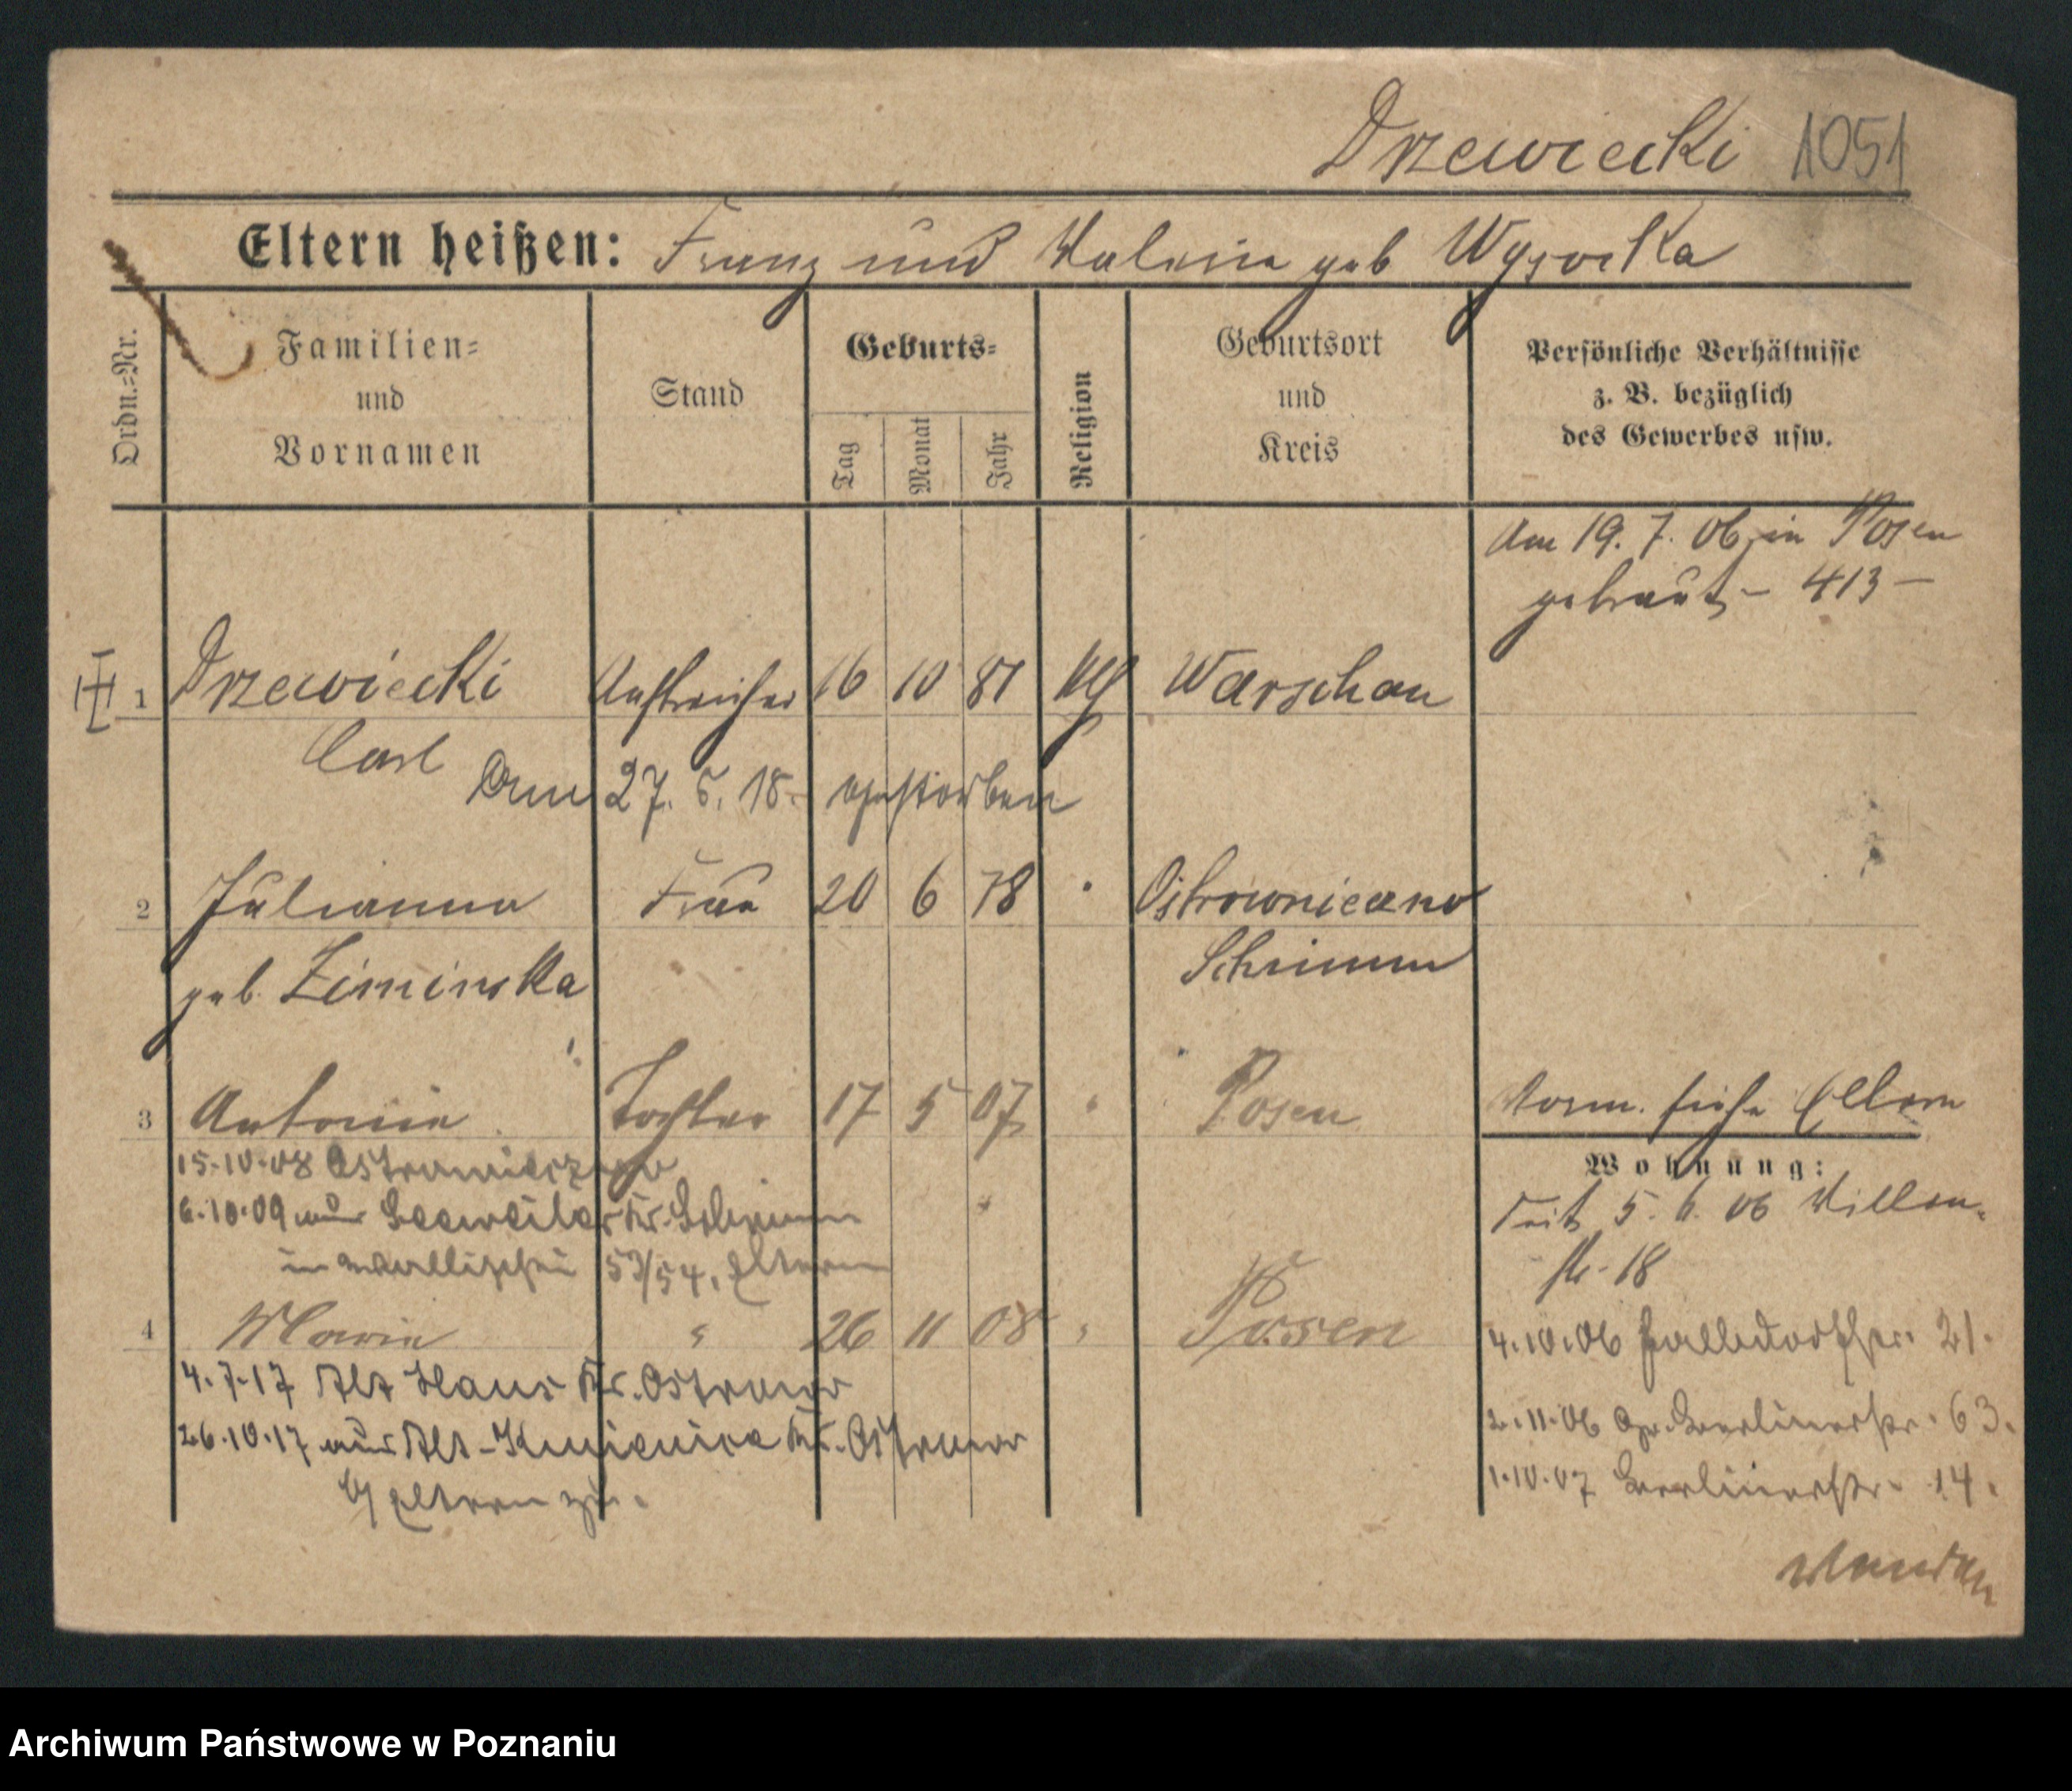 Drzewiecki 1051
Eltern heißen: Franz und Valeria geb Wysocka
Ordn.=Nr.
Familien=
und
Vornamen
Stand
Geburts=
Tag
Monat
Jahr
Religion
Geburtsort
und
Kreis
Persönliche Verhältnisse
z. B. bezüglich
des Gewerbes usw.
Am 19. 7. 06 in Posen
getraut – 413 –
1 Drzewiecki Anstreicher 16 10 81 Warschau
Carl
Am 27. 5. 18. gestorben
2 Julianna Frau 20 6 78 "
Schrimm
geb. Ziminska
3 Antonie Tochter 17 5 07 " Posen
Vorm. siehe Eltern
15.10.08
6.10.09 aus Kr. Schrimm
53/54, Eltern
Wohnung:
seit 5. 6. 06
str. 18
4 Maria " 26 11 08 " Posen
4.10.06 21.
4.7.17 Alt Kr. Ostrowo
2.11.06 Gr. Berlinerstr. 63.
26.10.17 aus Alt-Kr. Ostrowo
1.10.07 Berlinerstr. 14.
Eltern zu.